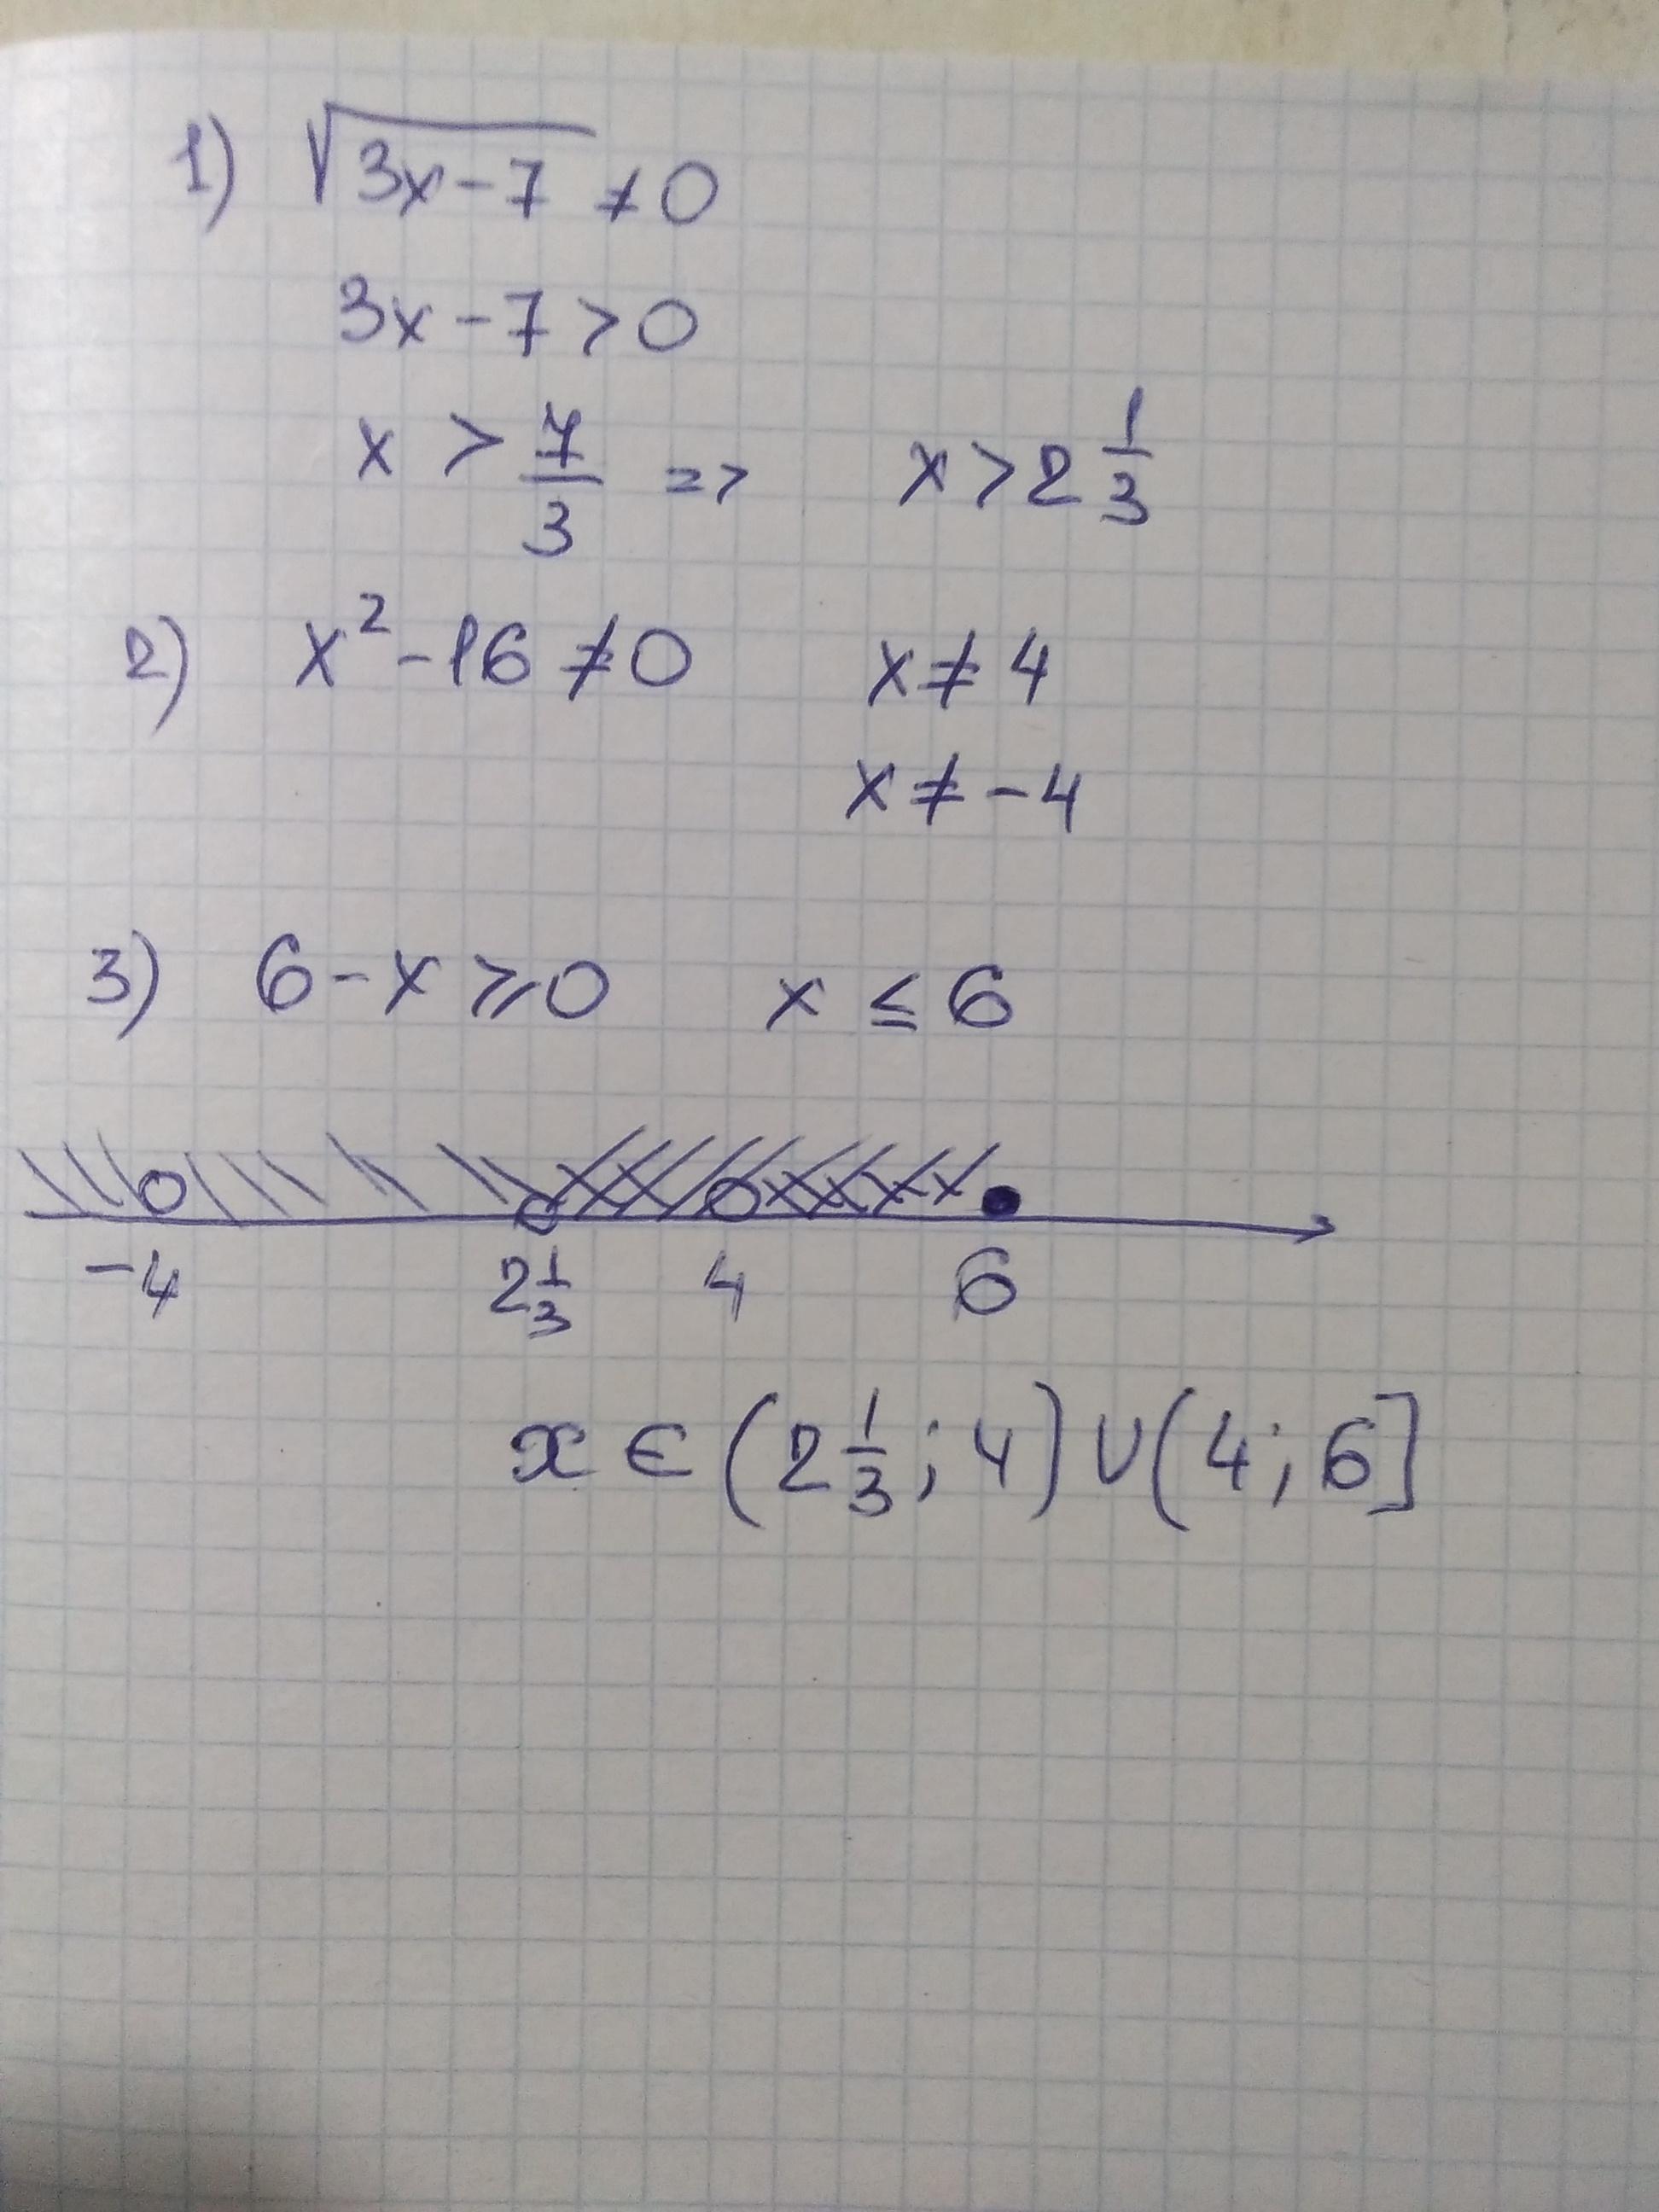 1) √(3x-7) ≠ 0
3x-7>0
x > 7/3 => x>2 1/3
2) x²-16≠0 x≠4
x≠-4
3) 6-x⩾0 x≤6
-4 2 1/3 4 6
x∈(2 1/3; 4)∪(4; 6]